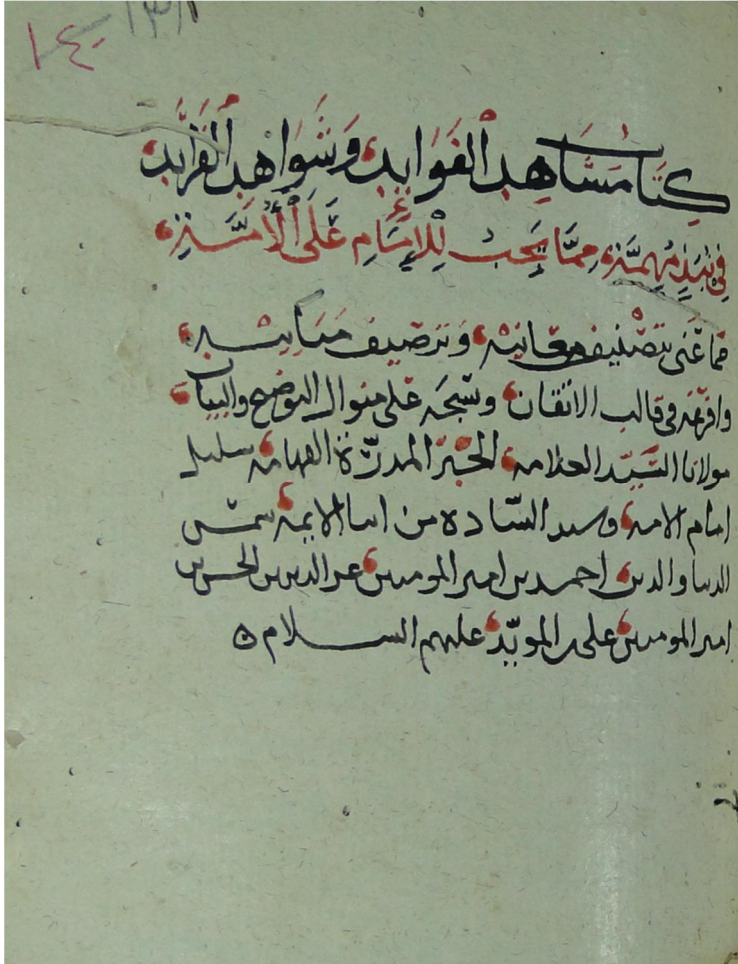 ١٣١
١٤
كِتَاب مَشَاهِد الفَوَايِد وَشَوَاهِد الفَرَايِد
فِي نُبَذٍ مُهِمَّةٍ مِمَّا يَجِبُ لِلإِمَامِ عَلَى الأُمَّةِ
مما عنى بتصنيف معانيه وترصيف مبانيه
وافرغه في قالب الاتقان ونسجه على منوال التوضيح والبيان
مولانا السيد العلامه الحبر المدره الفهامه سليل
امام الامه وسيد الساده من ابنا الايمه شمس
الدنيا والدين احمد بن امير المومنين عز الدين بن الحسن بن
امير المومنين علي بن المويد عليهم الســلام ه